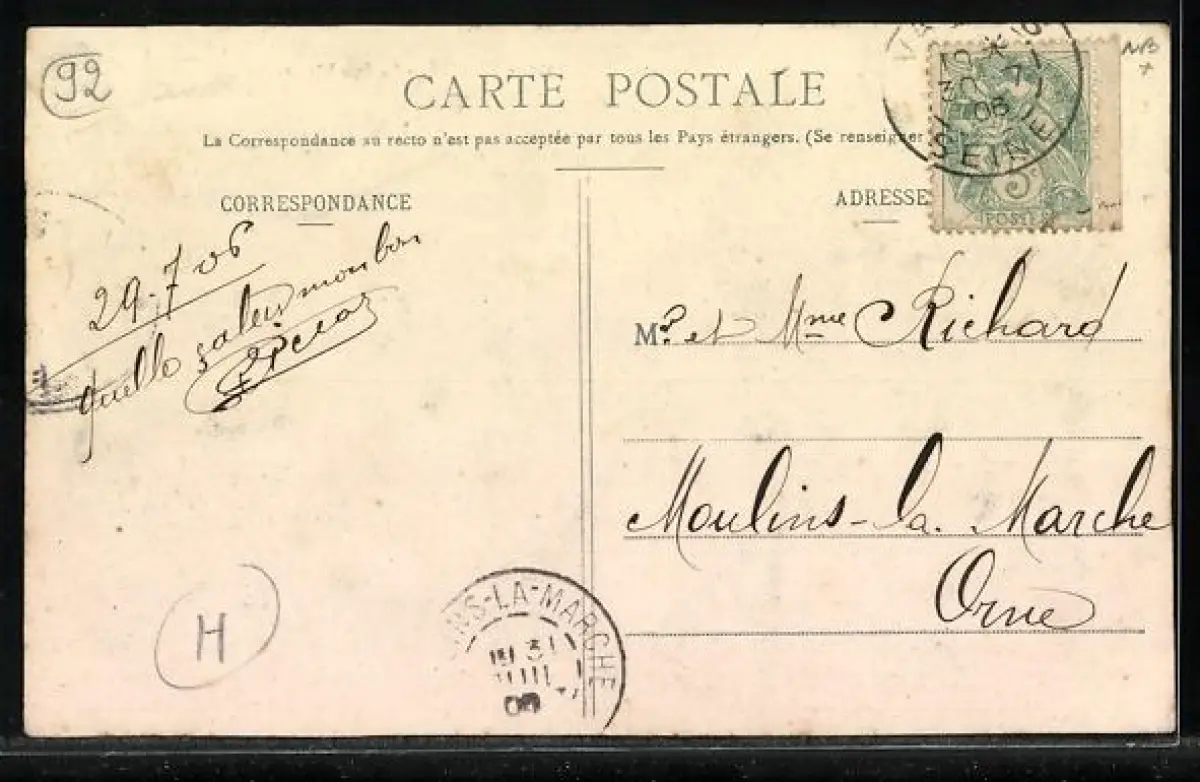 92
NB
+
CARTE POSTALE
La Correspondance au recto n'est pas acceptée par tous les Pays étrangers. (Se renseigner
CORRESPONDANCE
ADRESSE
30 7
06
SEINE
5c
POSTE
29-7 06
quelle mon bon
Mr et Mme Richard
Moulins-la-Marche
Orne
INS-LA-MARCHE
31
H